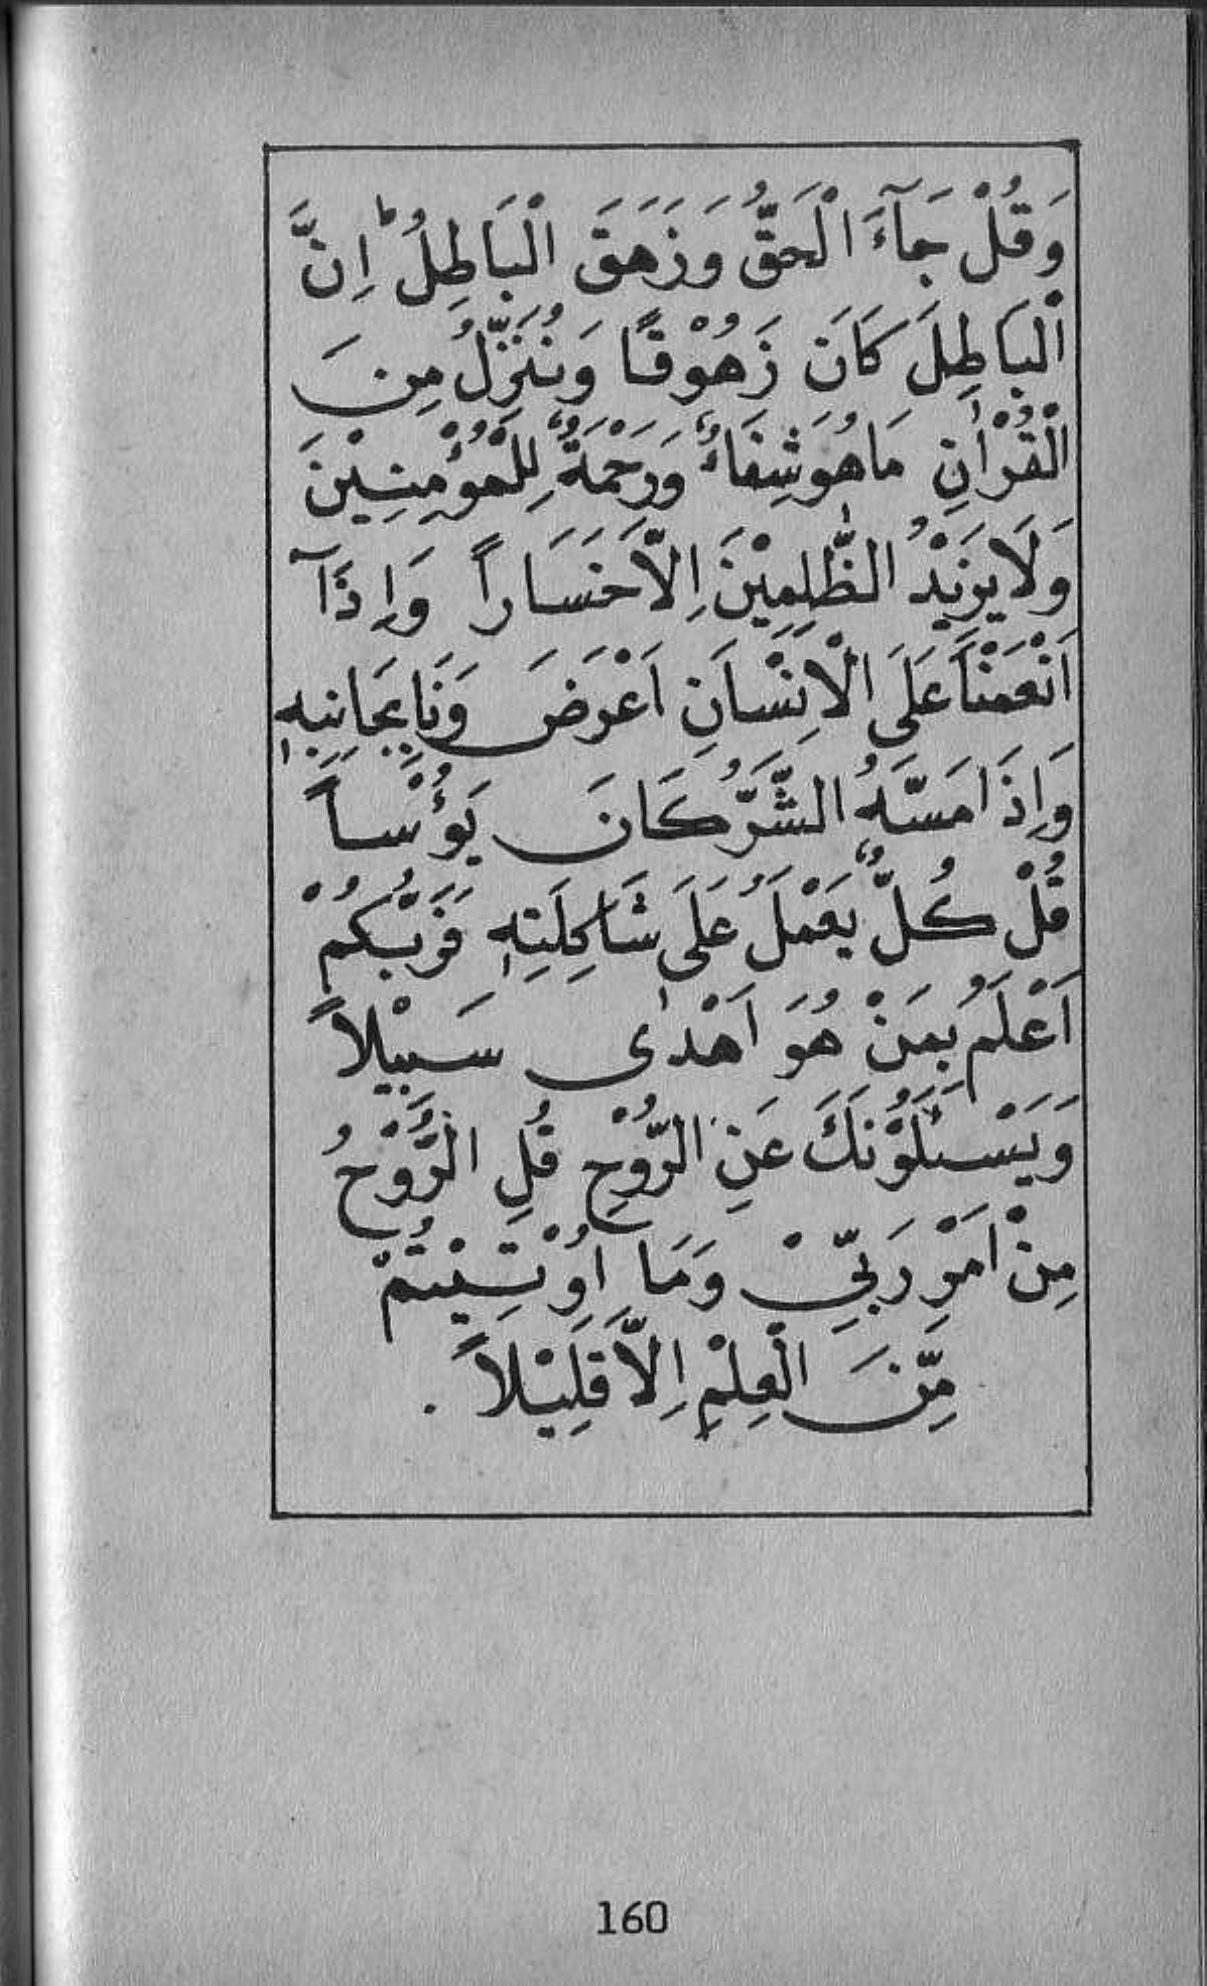 وَقُلْ جَآءَ الْحَقُّ وَزَهَقَ الْبَاطِلُ ؕ اِنَّ
الْبَاطِلَ كَانَ زَهُوْقًا وَنُنَزِّلُ مِنَ
الْقُرْاٰنِ مَا هُوَ شِفَاءٌ وَرَحْمَةٌ لِلْمُؤْمِنِيْنَ
وَلَا يَزِيْدُ الظّٰلِمِيْنَ اِلَّا خَسَاراً وَاِذَآ
اَنْعَمْنَا عَلَى الْاِنْسَانِ اَعْرَضَ وَنَاٰ بِجَانِبِهٖ
وَاِذَا مَسَّهُ الشَّرُّ كَانَ يَؤُسْاً
قُلْ كُلٌّ يَعْمَلُ عَلَى شَاكِلَتِهٖ فَرَبُّكُمْ
اَعْلَمُ بِمَنْ هُوَ اَهْدٰى سَبِيْلاً
وَيَسْئَلُوْنَكَ عَنِ الرُّوْحِ قُلِ الرُّوْحُ
مِنْ اَمْرِ رَبِّيْ وَمَا اُوْتِيْتُمْ
مِّنَ الْعِلْمِ اِلَّا قَلِيْلاً .
160